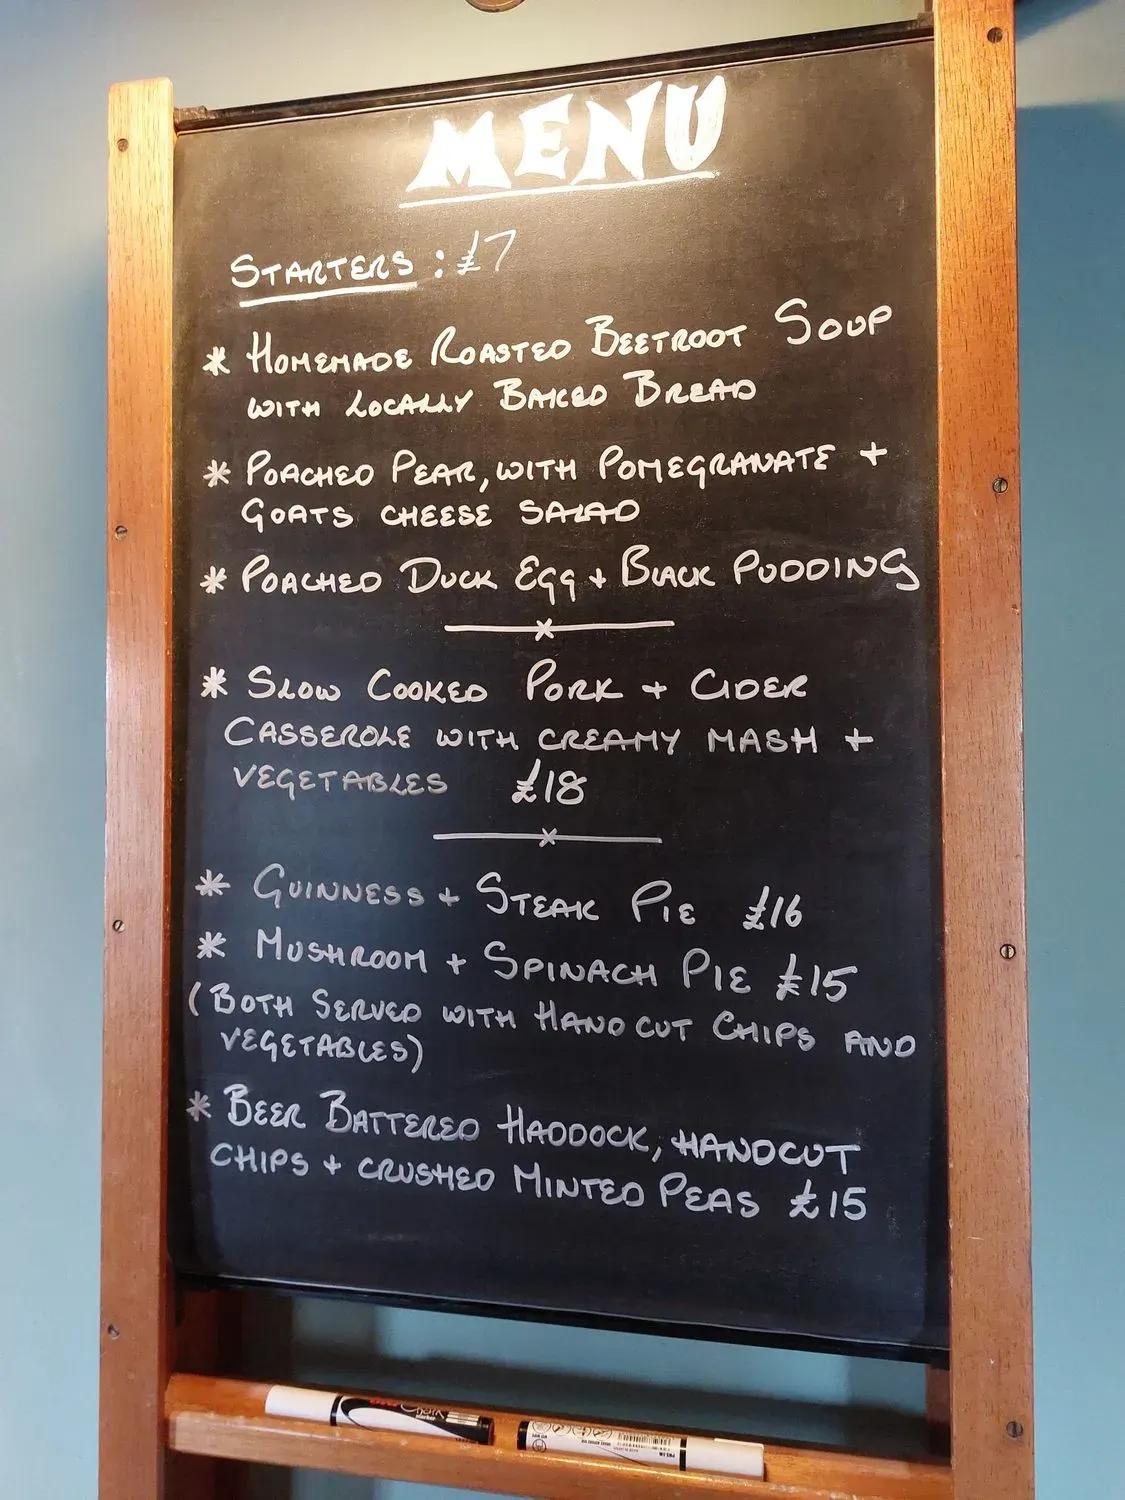 MENU
STARTERS : £7
* HOMEMADE ROASTED BEETROOT SOUP
WITH LOCALLY BAKED BREAD
* POACHED PEAR, WITH POMEGRANATE +
GOATS CHEESE SALAD
* POACHED DUCK EGG + BLACK PUDDING
* SLOW COOKED PORK + CIDER
CASSEROLE WITH CREAMY MASH +
VEGETABLES £18
* GUINNESS + STEAK PIE £16
* MUSHROOM + SPINACH PIE £15
(BOTH SERVED WITH HAND CUT CHIPS AND
VEGETABLES)
* BEER BATTERED HADDOCK, HANDCUT
CHIPS + CRUSHED MINTED PEAS £15
Chalk
marker